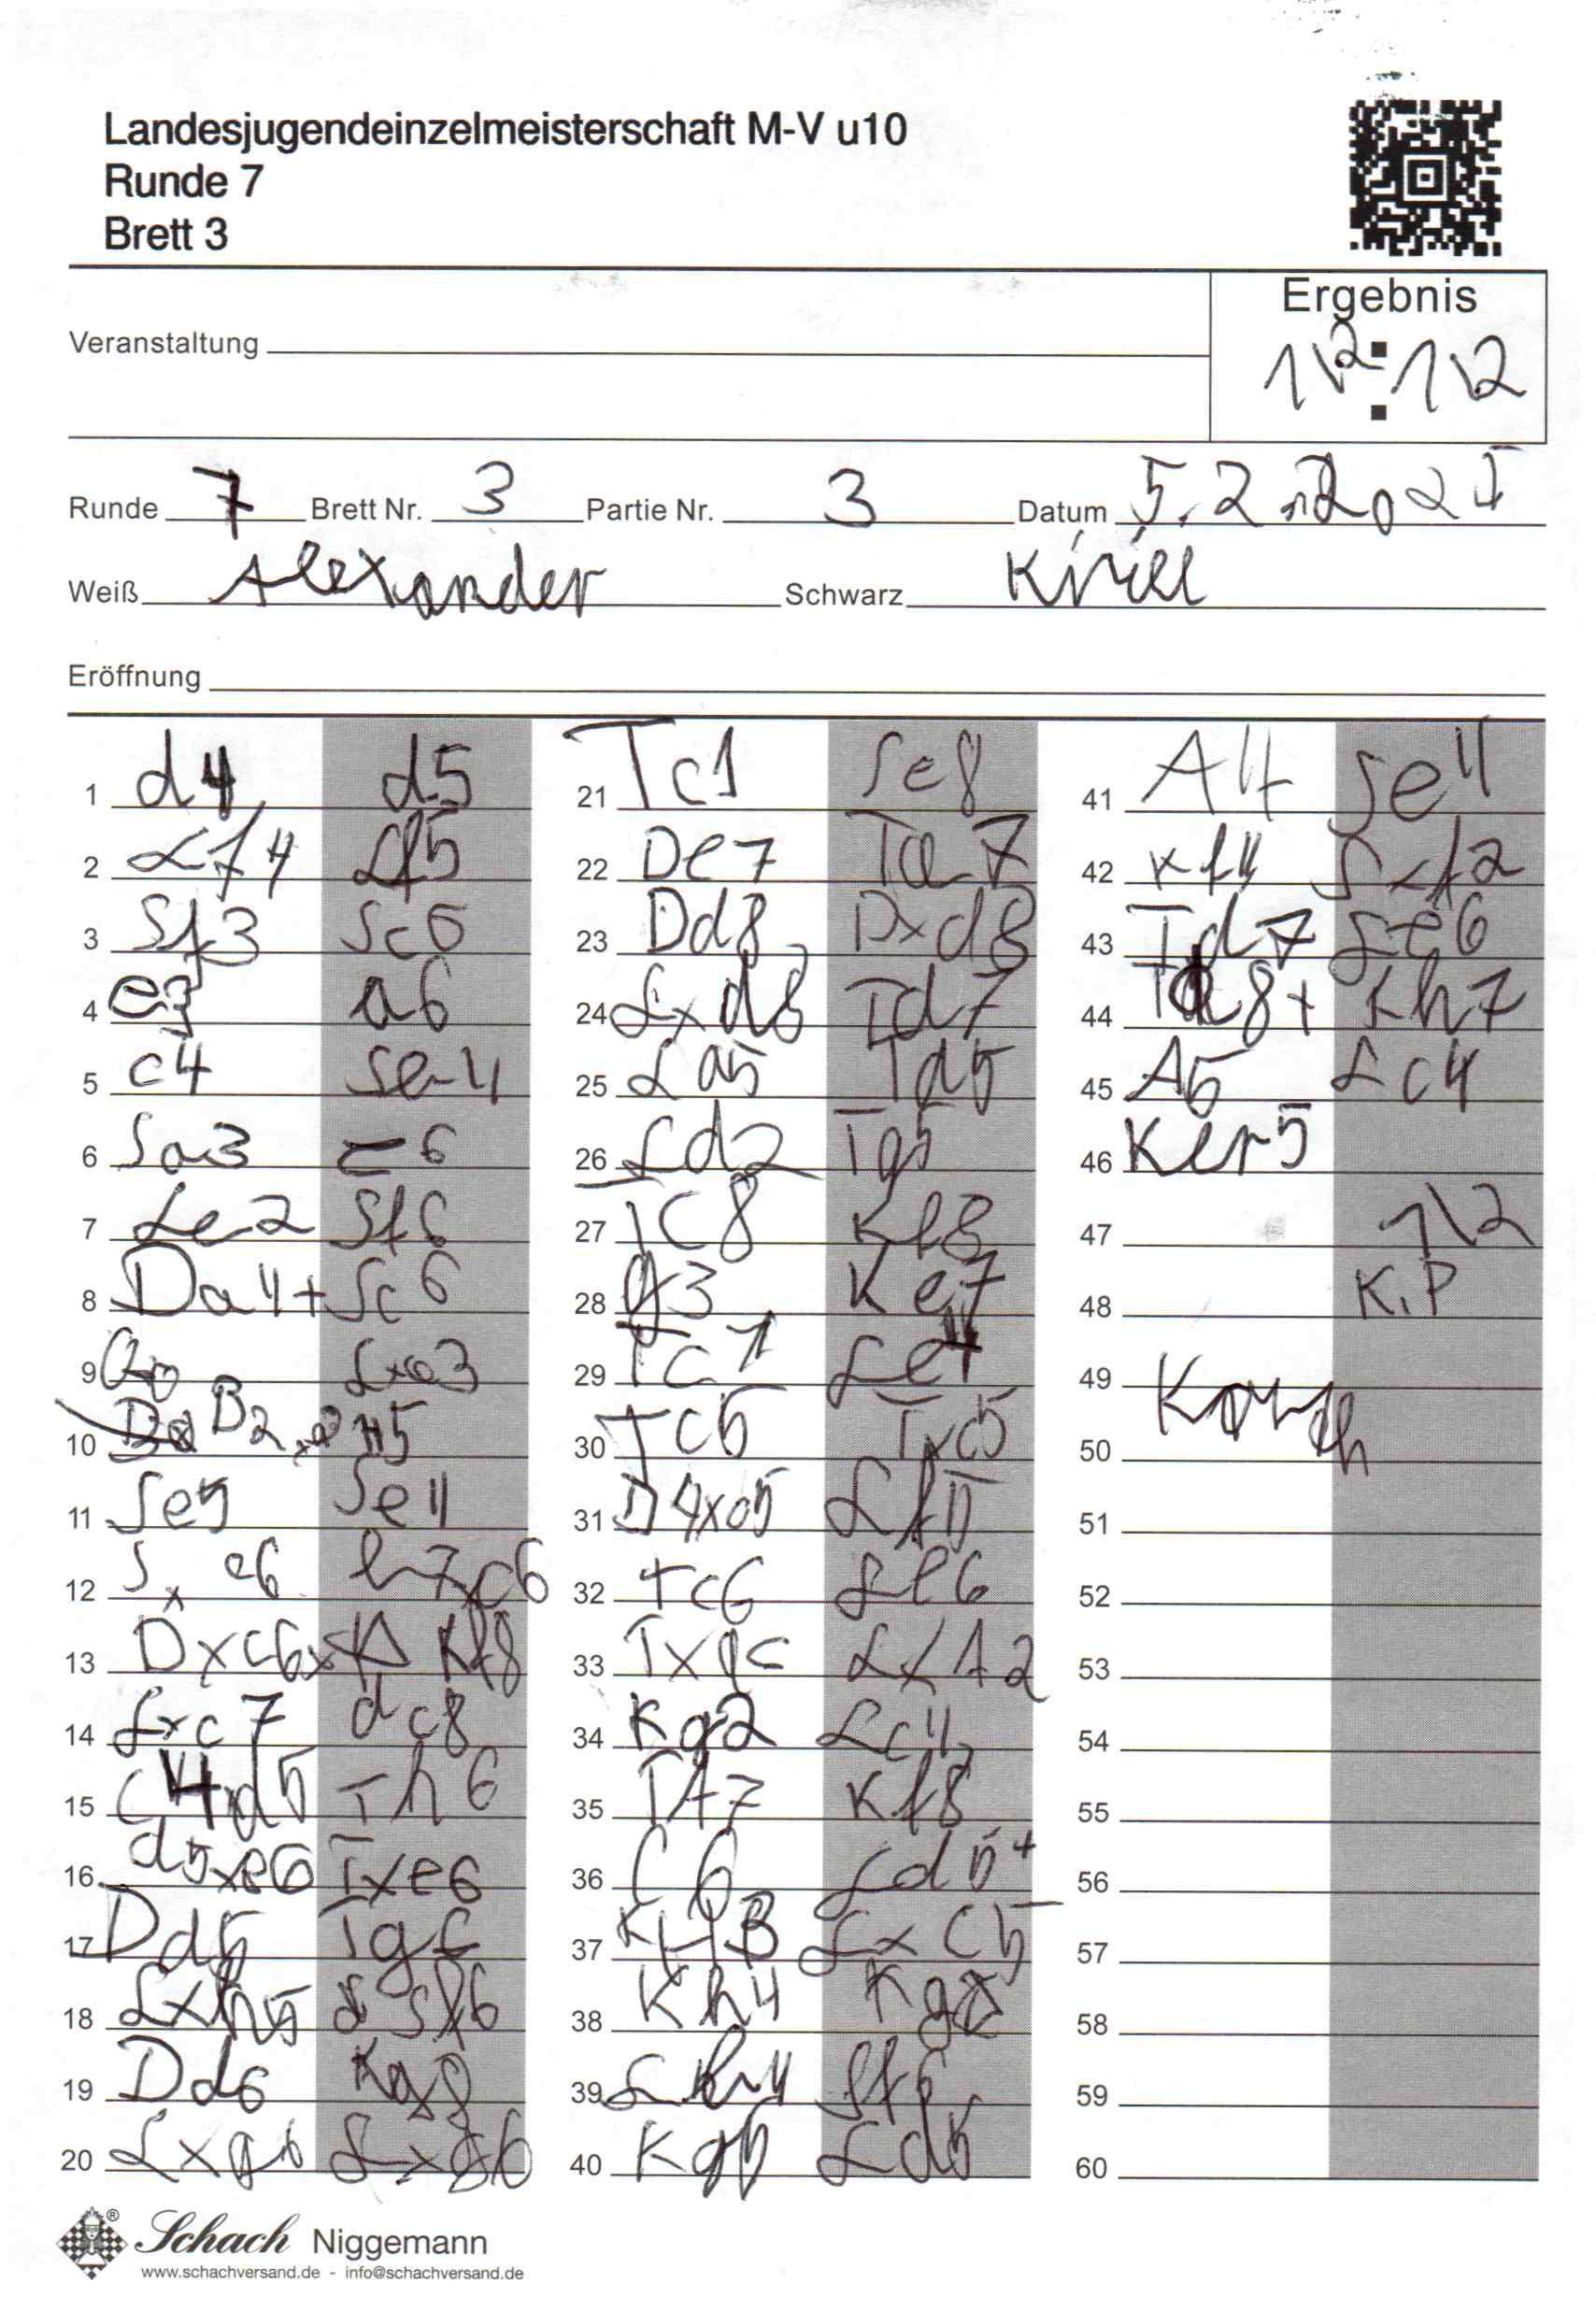 Landesjugendeinzelmeisterschaft M-V u10
Runde 7
Brett 3
Ergebnis
Veranstaltung
1\2 : 1\2
Runde 7 Brett Nr. 3 Partie Nr. 3 Datum 5.2.2025
Weiß Alexander Schwarz Kirill
Eröffnung
1 d4 d5
2 Lf4 Lf5
3 Sf3 Sc6
4 e3 a6
5 c4 Se4
6 Sa3 e6
7 Le2 Sf6
8 Da4+ Sc6
9 Lxa3
10 B2xa3 H5
11 Se5 Se4
12 Sxc6 b7xc6
13 Dxc6x Kf8
14 Lxc7 dc8
15 c4xd5 Th6
16 d5xe6 Txe6
17 Dd5 Tg6
18 Lxh5 Sf6
19 Dd6 Kg8
20 Lxg6 Lxg6
21 Tc1 Se8
22 De7 Ta7
23 Dd8 Dxd8
24 Lxd8 Td7
25 La5 Td5
26 Ld2 Tg5
27 TC8 Kf8
28 g3 Ke7
29 Tc1 Le4
30 Tc5 Txc5
31 D4xc5 Lf5
32 Tc6 Le6
33 Txa6 LxA2
34 Kg2 Lc4
35 TA7 Kf8
36 C6 Ld5+
37 KH3 LxC5
38 Kh4
39 Lb4 Sf6
40 Kg5 Ld5
41 A4 Se4
42 Kf4 Sxf2
43 Td7 Le6
44 Td8+ Kh7
45 A5 Lc4
46 Ke5
47 1\2
48 K.P
49
50
51
52
53
54
55
56
57
58
59
60
Schach Niggemann
www.schachversand.de - info@schachversand.de